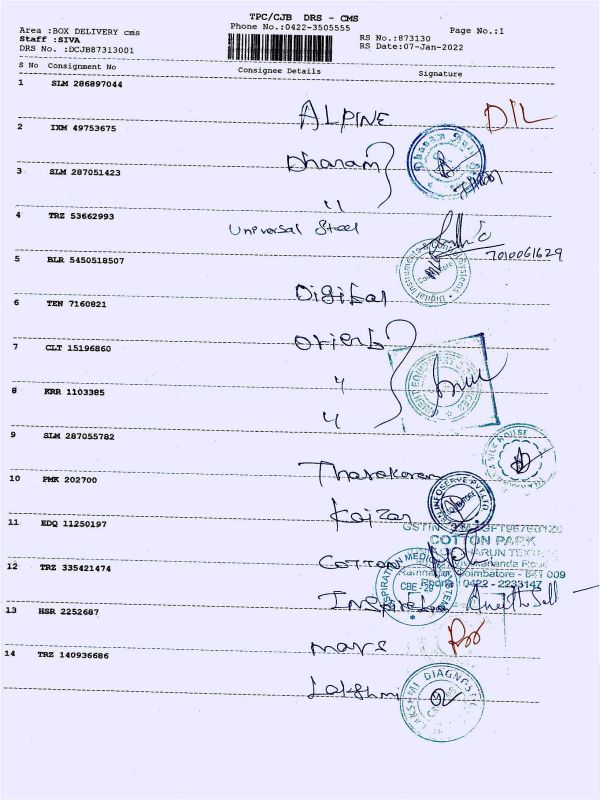 TPC/CJB DRS - CMS
Area :BOX DELIVERY cms
Phone No.:0422-3505555
Page No.:1
Staff :SIVA
RS No.:873130
DRS No. :DCJB87313001
RS Date:07-Jan-2022
S No Consignment No Consignee Details Signature
1 SLM 286897044
ALPINE DIL
2 IXM 49753675
Dharam
3 SLM 287051423
"
4 TRZ 53662993
Universal Steel
7010061629
5 BLR 5450518507
Digital
Digital Instruments &
6 TEN 7160821
Orient
7 CLT 15196860
"
8 KRR 1103385
"
9 SLM 287055782
Tharakaran
SILK HOUSE
10 PMK 202700
Kaizan
INFOSERVE PVT LTD
11 EDQ 11250197
COTTON
GSTIN
COTTON PARK
ARUN TEXTILE
Coimbatore - 641 009
Phone : 0422 - 2233147
12 TRZ 335421474
Inspiration
INSPIRATION MEDICAL
CBE-29
13 HSR 2252687
mars
14 TRZ 140936686
Lakshmi
LAKSHMI DIAGNOSTIC